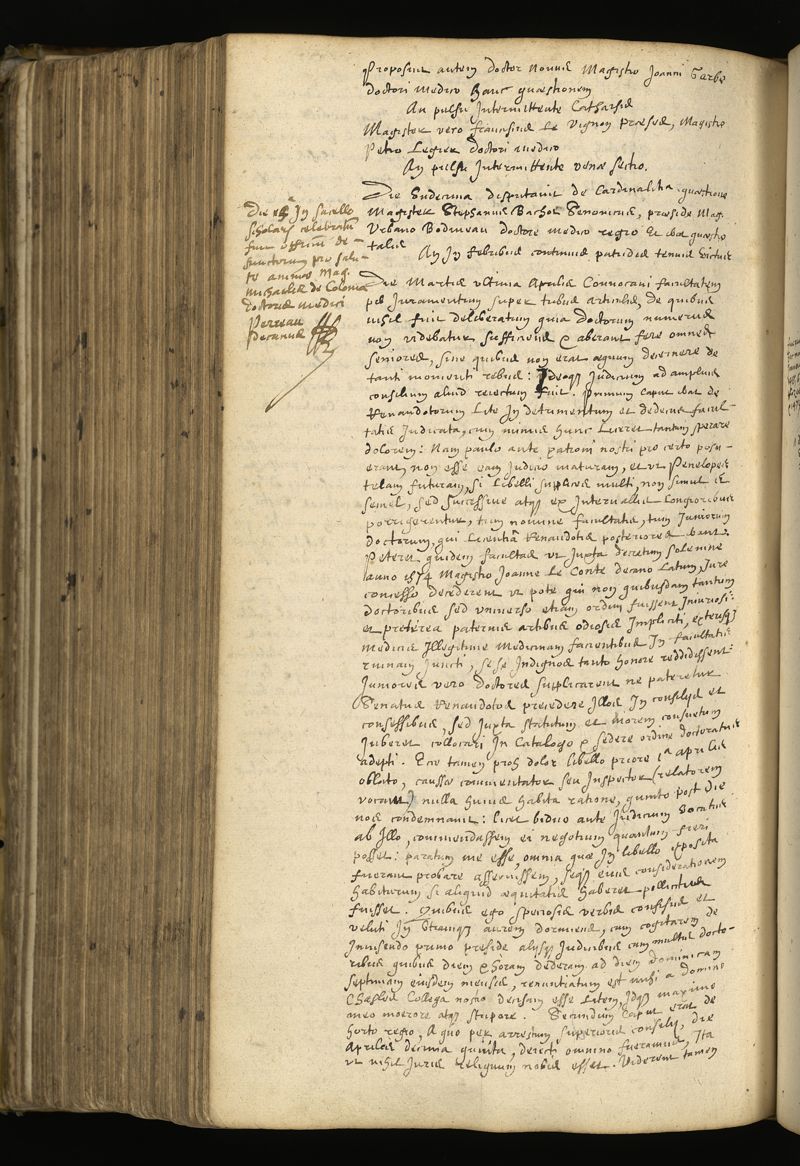 Proposuit autem doctor novus Magistro Joanni Garbe
doctori medico hanc quaestionem
An pulsu Intermittente Catharsis
Magister vero francisus Le Vignon Praeses, Magistro
Petro Legier doctori medico
An pulsu Intermittente venae sectio.
Die Undecima disputavit de Cardinalitia quaestione
Magister Stephanus Bachot Senonicus, praeside Mag.
Urbano Bodineau doctore medico regio Et erat quaestio
talis
An In febribus continuis putridis tenuis victus
Die In sacello
scholarum celebratum
fuit officium de-
functorum pro salu-
te animae Mag.
michaelis de Colonia
doctoris medici
Perreau
Decanus
Die Martis ultima Aprilis Convocavi facultatem
per Juramentum super tribus articulis, de quibus
nihil fuit deliberatum quia doctorum numerus
non videbatur sufficiens & aberant fere omnes
seniores, sine quibus non erat aequum decernere de
tanti momenti rebus: Ideoque Judicium ad amplius
consilium aliud reiectum fuit. Primum caput erat de
Renaudotorum Lite In detrimentum et dedecus facul-
tatis Judicata, cum nimis hunc Liceret tantum sperare
dolorem: Nam paulo ante patroni nostri pro certo posu-
erant, non esse eam Judicio maturam, et ut Penelopes
telam futuram, si Libelli supplices multi, non simul &
semel, sed successive atque ex Intervallis Longioribus
porrigerentur, tum nomine facultatis, tum Juniorum
doctorum, qui Licentia Renaudotis posteriores erant.
Peteret quidem facultas ut Juxta decretum solemne
anno 1574 Magistro Joanne Le Conte decano Latum, Jure
concesso decederent ut pote qui non quibusdam tantum
doctoribus sed universo etiam ordini fuissent Iniuriosi:
et preterea paternis artibus odiosis Impliciti, exterisque
medicis Illegitime medicinam facientibus In facultatis
ruinam Juncti, se se Indignos tanto honore reddidissent:
Juniores vero doctores supplicarent ne pateretur
Senatus Renaudotos precedere Illos In consilijs et
consessibus, sed Juxta statutum et morem consuetum
Juberet collocari In Catalogo & sedere ordine doctoratus
adepti. Ecce tamen proh dolor libello priore 1ª aprilis
oblato, caussae commentator seu Inspector (relatorem
vocant) nulla huius habita ratione, quinto post die
nos condemnavit: licet biduo ante Judicium vocatus
ab Illo, commendassem ei negotium quantum fieri
posset: paratum me esse omnia quae In libello exposita
fuerant probare asseruissem, seque eius considerationem
habiturum si aliquid aequitatis haberet pollicitus
fuisset. Quibus ego speciosis verbis confisus et
veluti In utramque aurem dormiens, cum cogitarem de
Invisendo primo preside alijsque Judicibus cum multis docto-
ribus quibus diem & horam dederam ad diem dominicam
septimam eiusdem mensis, renuntiatum est mihi a domino
Chasles Collega nostro decisam esse Litem, Idque maximo
meo moerore atque stupore. Secundum Caput erat de
horto regio, A quo per arrestum superioris consilij, die
Aprilis decima quinta, deiecti omnino fueramus, Ita
ut nihil Juris reliquum nobis esset. Viderent tamen